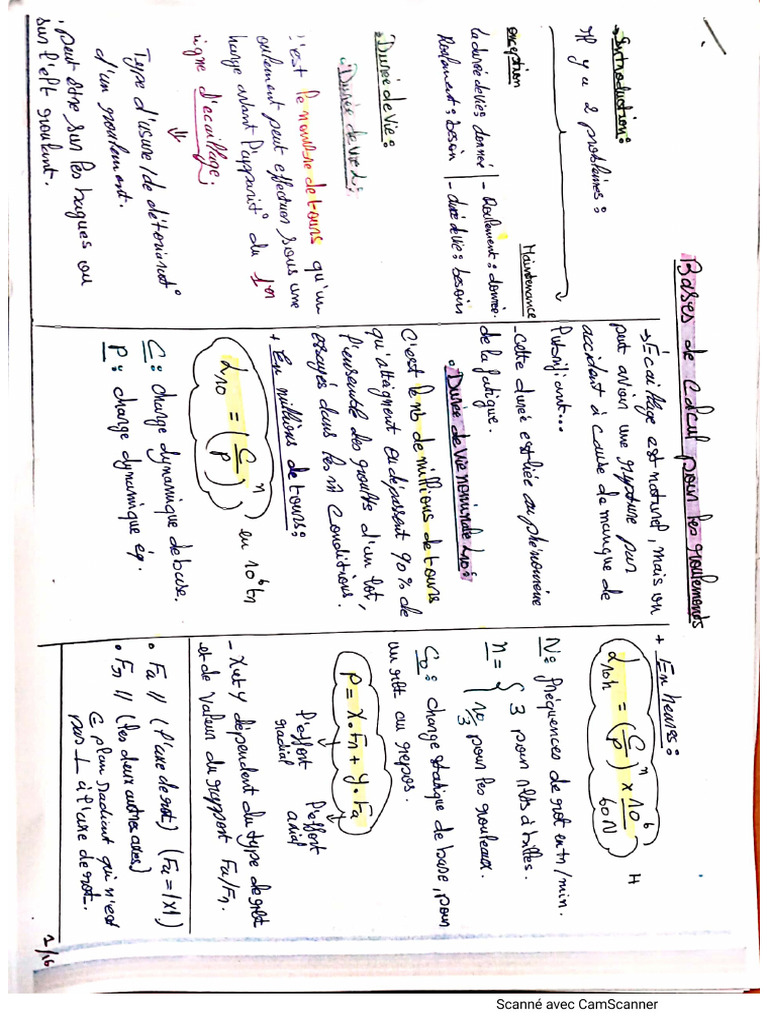 Bases de Calcul pour les roulements
→ Introduction:
Il y a 2 problèmes:
conception
la durée de vie: donnée
Roulement: besoin
Maintenance
- Roulement: donnée.
- durée de vie: besoin
• Durée de vie:
Durée de vie L:
c'est le nombre de tours qu'un
roulement peut effectuer sous une
charge avant l'apparit° du 1er
signe d'écaillage;
⇓
Type d'usure/de détériorat°
d'un roulement.
peut être sur les bagues ou
sur l'elt roulant.
→ Écaillage est naturel, mais on
peut avoir une rupture par
accident à cause de manque de
- Cette durée est liée au phénomène
de la fatigue.
• Durée de vie nominale L10:
C'est le nb de millions de tours
qu'atteignent ou dépassent 90% de
l'ensemble des roults d'un lot,
essayés dans les m̂ conditions.
+ En millions de tours:
L10 = (C/P)^n en 10^6 tr
C: charge dynamique de base.
P: charge dynamique éq.
+ En heures:
L10h = (C/P)^n × 10^6/60N H
N: fréquences de rot en tr/min.
n = { 3 pour rlts à billes.
10/3 pour les rouleaux.
C0: charge statique de base, pour
un rlt au repos.
P = X.Fr + Y.Fa
l'effort radial
l'effort axial
- X et Y dépendent du type de rlt
et de valeur du rapport Fa/Fr.
• Fa // (l'axe de rot) (Fa = |X|)
• Fr // (les deux autres axes)
∈ plan radiant qui n'est
pas ⊥ à l'axe de rot.
1/16
Scanné avec CamScanner